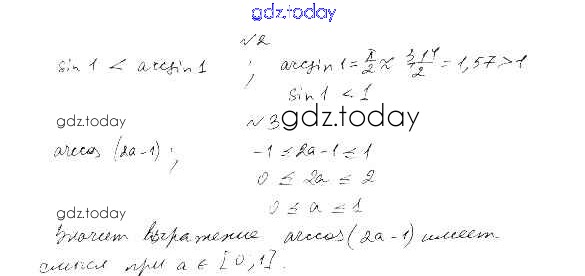 gdz.today
№2
sin 1 < arcsin 1 ; arcsin 1 = π/2 ≈ 3,14/2 = 1,57 > 1
sin 1 < 1
gdz.today
№3 gdz.today
arccos (2a-1) ; -1 ≤ 2a-1 ≤ 1
0 ≤ 2a ≤ 2
gdz.today
0 ≤ a ≤ 1
Значит выражение arccos(2a-1) имеет
смысл при a ∈ [0,1].